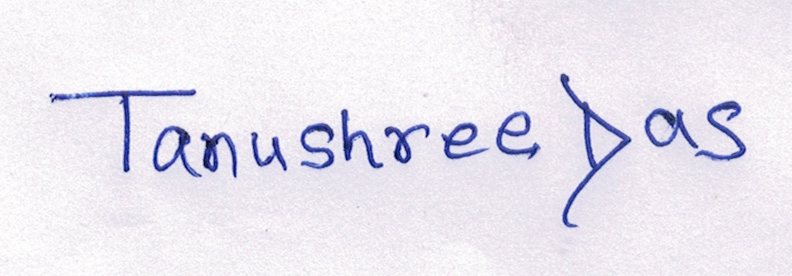 Tanushree Das